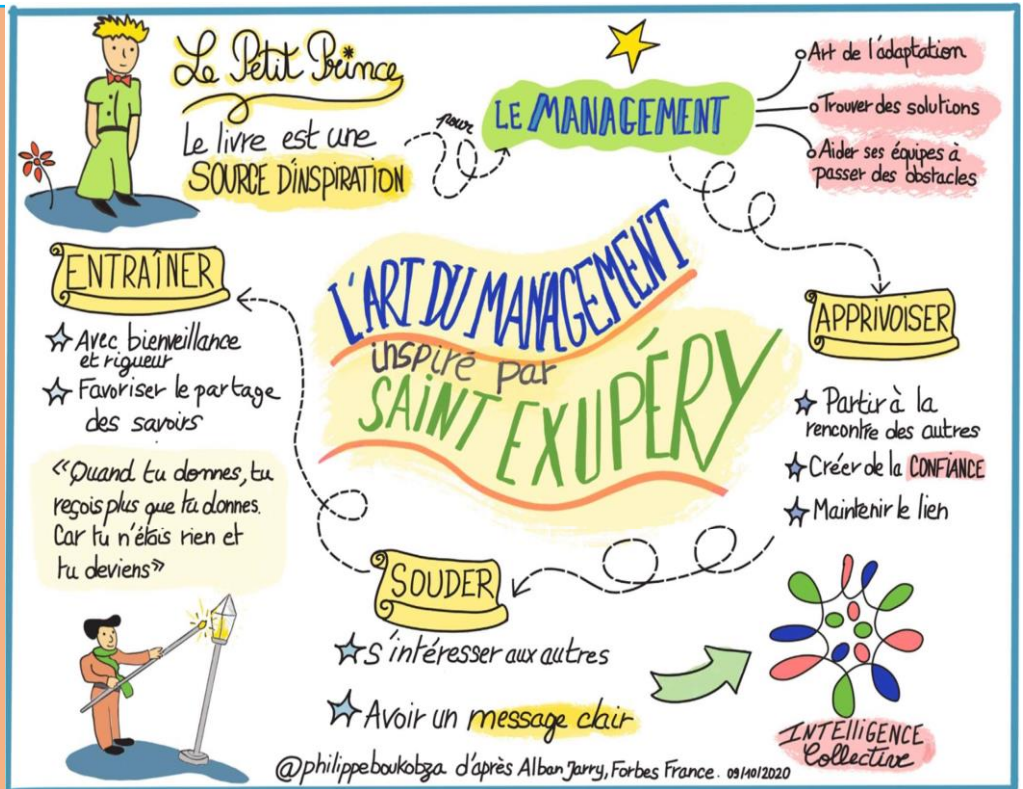 Le Petit Prince
Le livre est une
SOURCE D'INSPIRATION
pour
LE MANAGEMENT
Art de l'adaptation
Trouver des solutions
Aider ses équipes à
passer des obstacles
L'ART DU MANAGEMENT
inspiré par
SAINT EXUPÉRY
APPRIVOISER
Partir à la
rencontre des autres
Créer de la CONFIANCE
Maintenir le lien
SOUDER
S'intéresser aux autres
Avoir un message clair
INTELLIGENCE
Collective
ENTRAÎNER
Avec bienveillance
et rigueur
Favoriser le partage
des savoirs
«Quand tu donnes, tu
reçois plus que tu donnes.
Car tu n'étais rien et
tu deviens»
@philippeboukobza d'après Alban Jarry, Forbes France. 09/10/2020